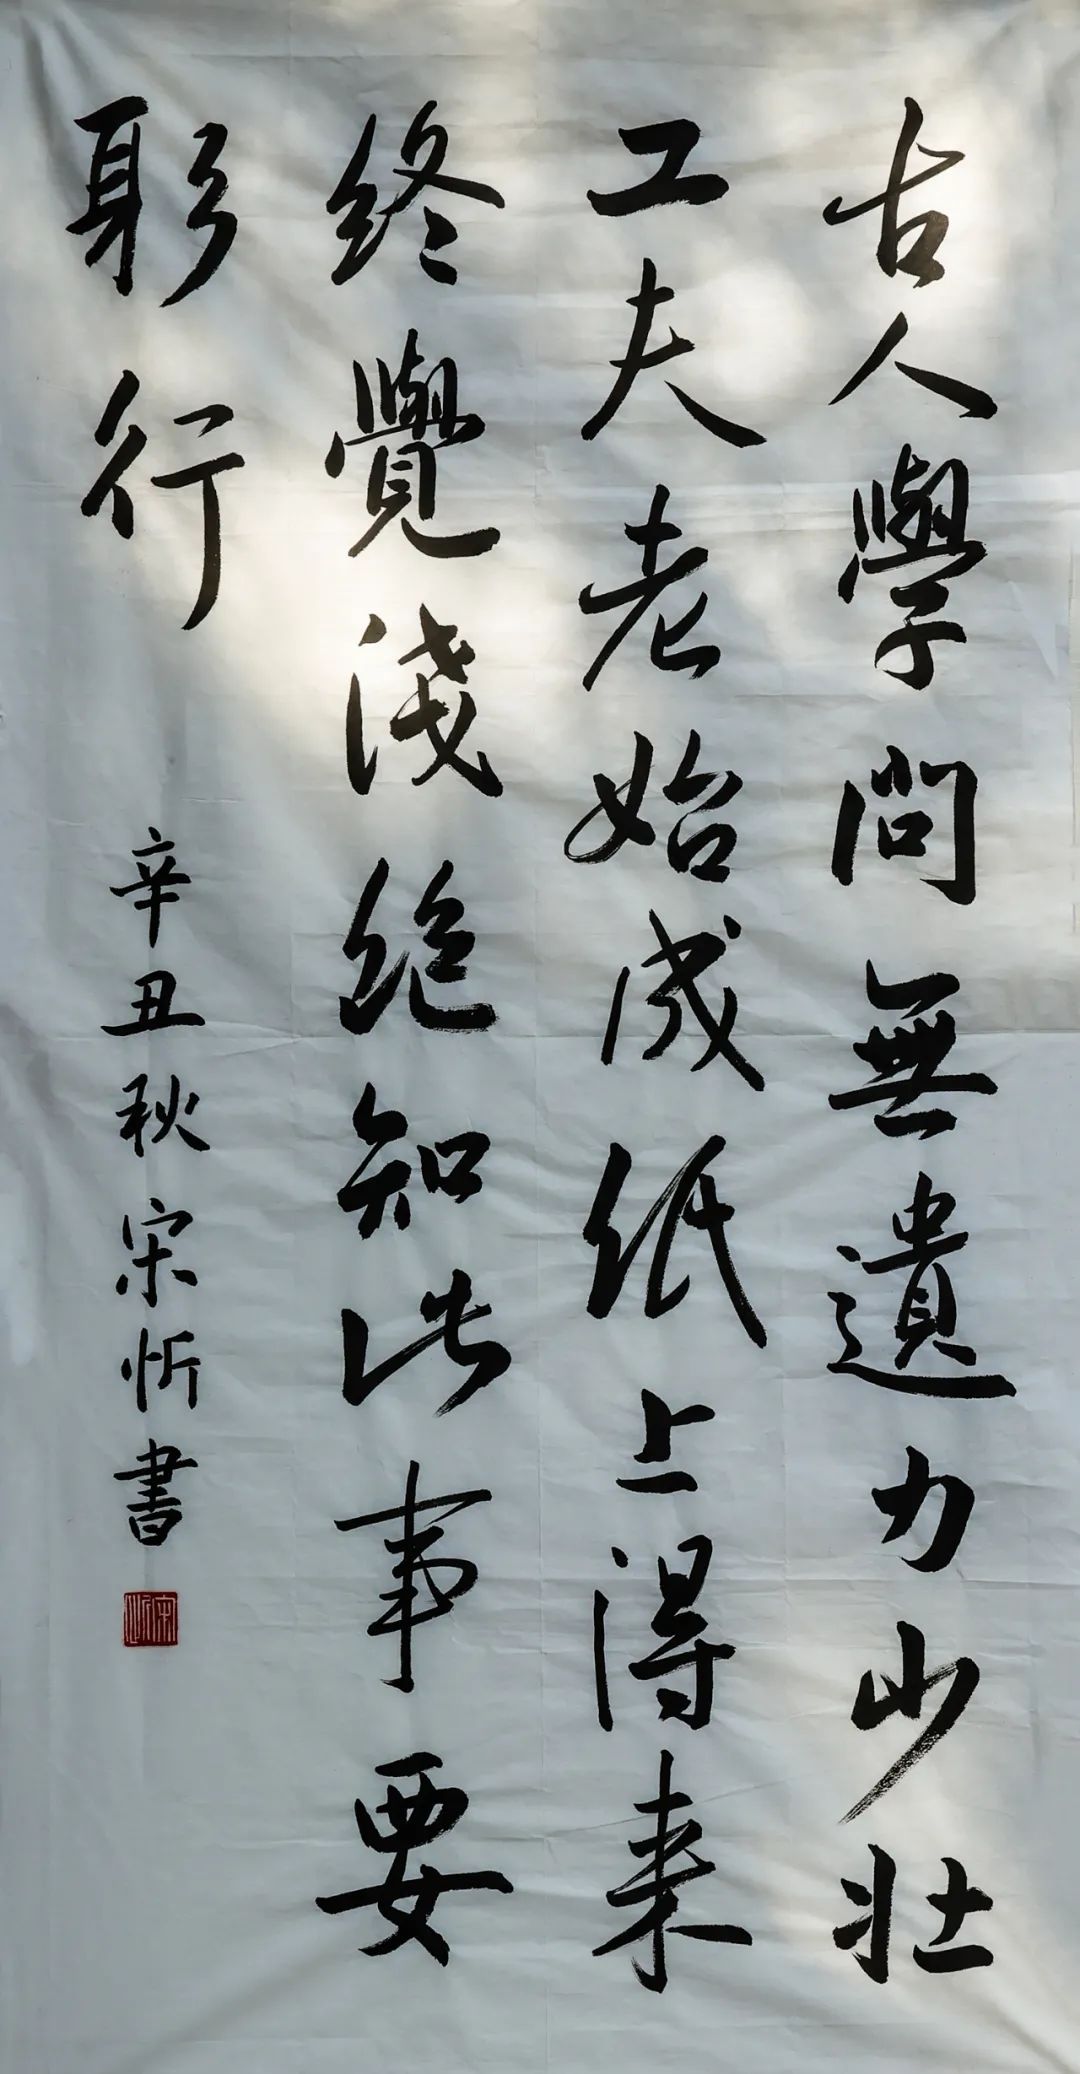 古人學問無遺力少壯
工夫老始成紙上得来
終覺淺絕知此事要
躬行
辛丑秋宋忻書
宋忻